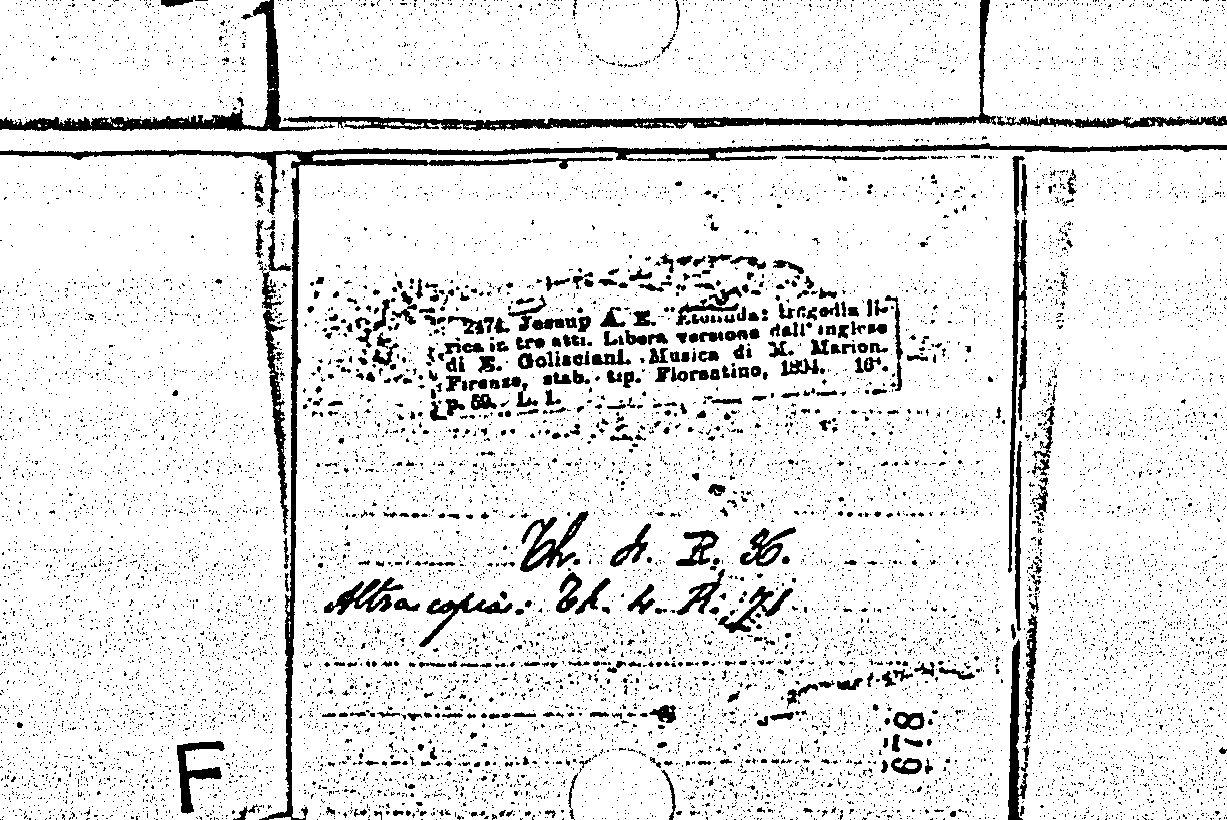 2474. Jessup A. E. Etelinda: tragedia li-
rica in tre atti. Libera versione dall' inglese
di E. Golisciani. Musica di M. Marion.
Firenze, stab. tip. Fiorentino, 1894. 16°.
p. 59. L. 1.
Th. 4. R. 36.
Altra copia: Th. 4. R. 71
678
F